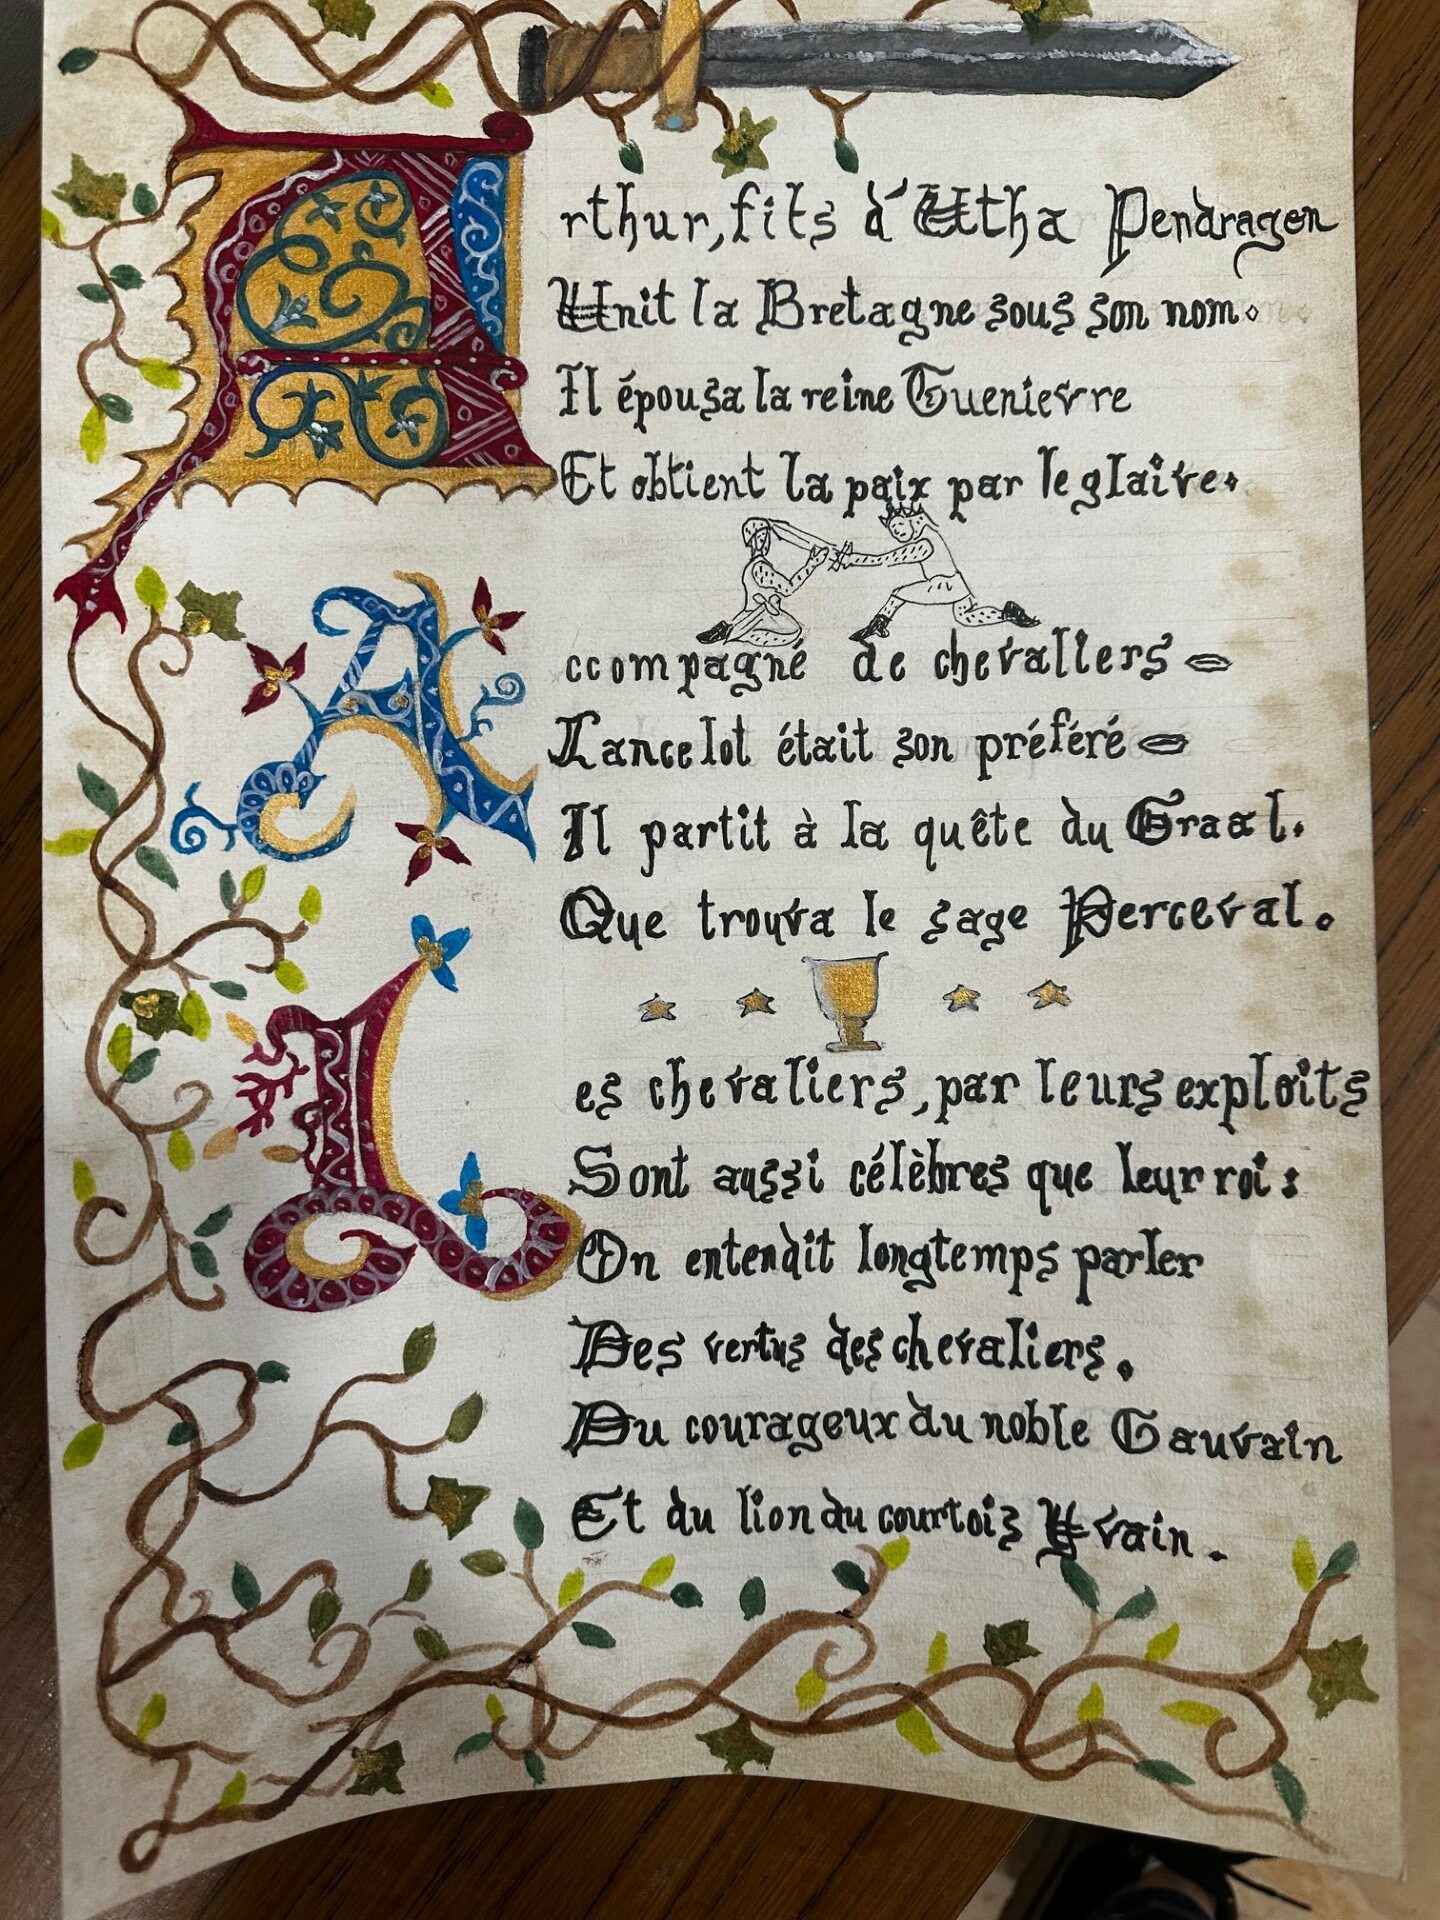 Arthur, fils d'Utha Pendragon
Unit la Bretagne sous son nom.
Il épousa la reine Guenievre
Et obtient la paix par le glaive.
Accompagné de chevaliers
Lancelot était son préféré
Il partit à la quête du Graal.
Que trouva le sage Perceval.
Les chevaliers, par leurs exploits
Sont aussi célèbres que leur roi :
On entendit longtemps parler
Des vertus des chevaliers.
Du courageux du noble Gauvain
Et du lion du courtois Yvain.